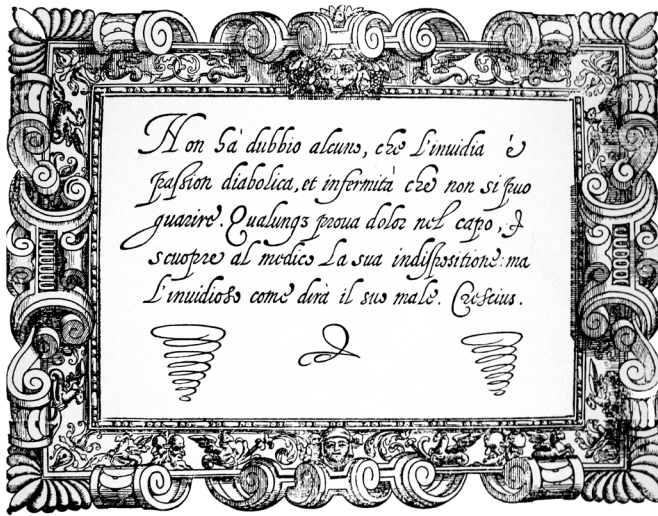 Non hà dubbio alcuno, che l'inuidia è
passion diabolica, et infermità che non si puo
guarire. Qualunqȝ proua dolor nel capo, &
scuopre al medico la sua indispositione: ma
l'inuidioso come dirà il suo male. Crescius.